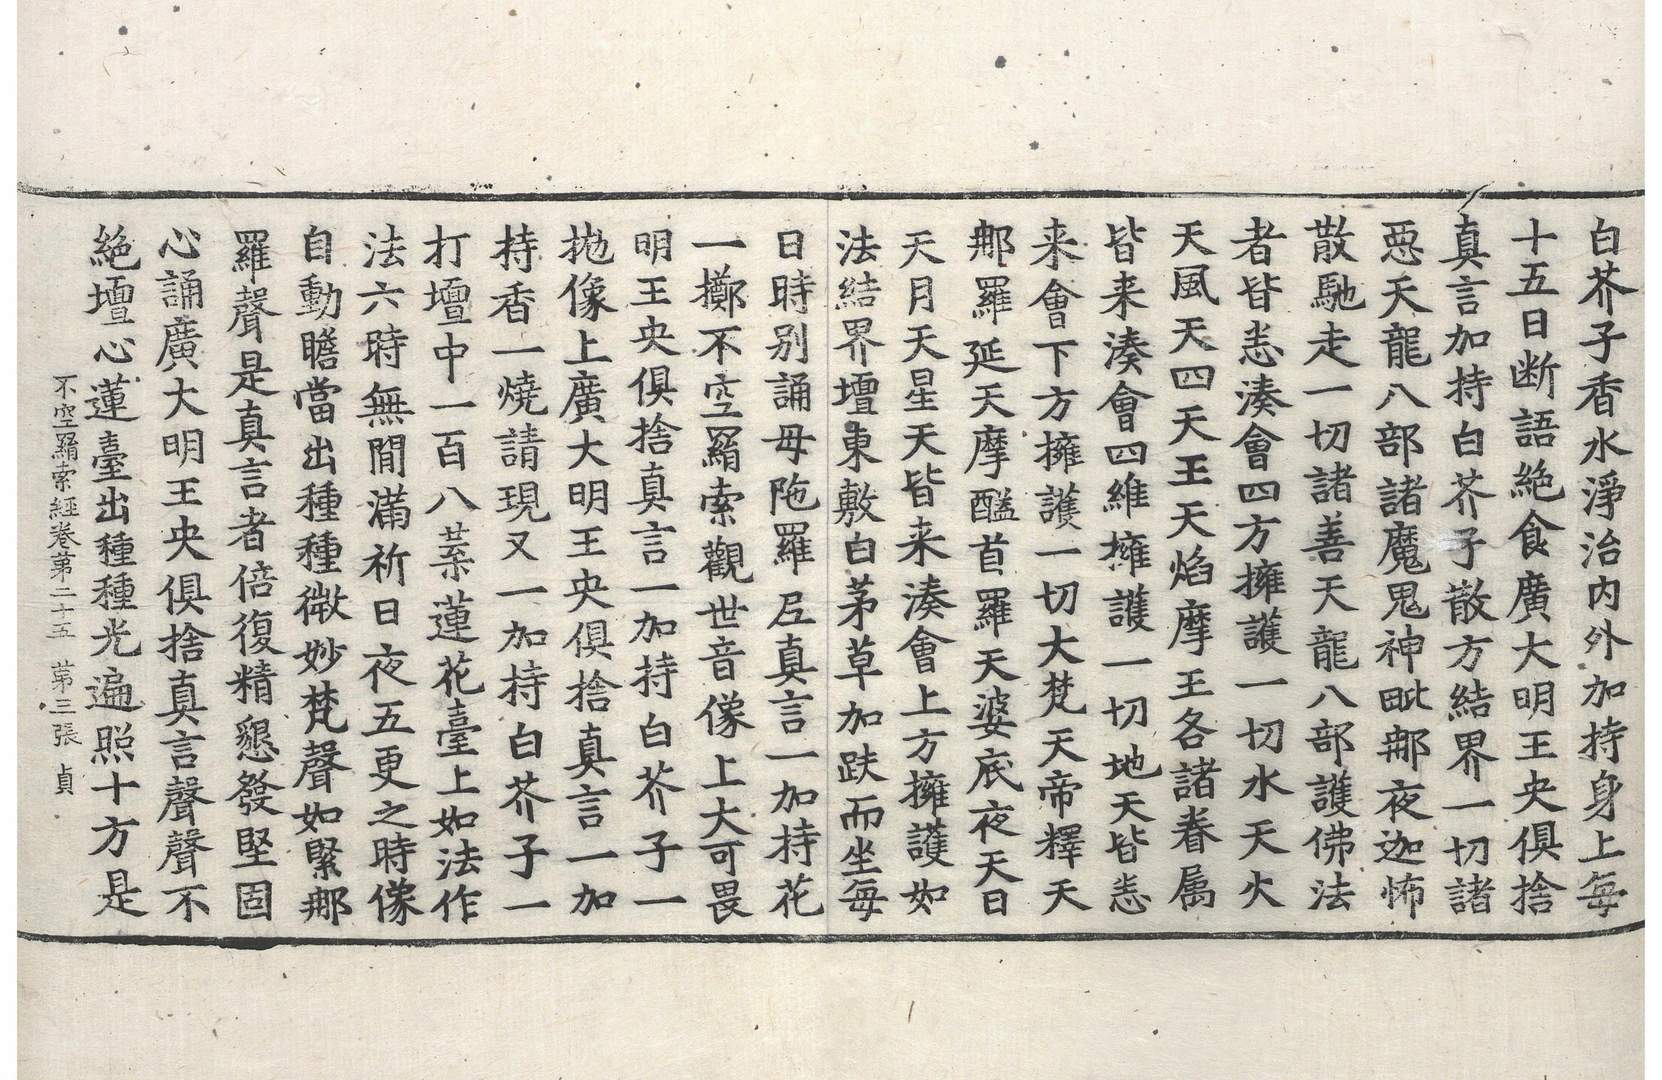 白芥子香水淨治内外加持身上每
十五日断語絶食廣大明王央俱捨
真言加持白芥子散方結界一切諸
惡天龍八部諸魔鬼神毗那夜迦怖
散馳走一切諸善天龍八部護佛法
者皆悉湊會四方擁護一切水天火
天風天四天王天焰摩王各諸眷属
皆来湊會四維擁護一切地天皆悉
来會下方擁護一切大梵天帝釋天
那羅延天摩醯首羅天婆㡳夜天日
天月天星天皆来湊會上方擁護如
法結界壇東敷白茅草加趺而坐每
日時别誦母陁羅尼真言一加持花
一擲不空羂索觀世音像上大可畏
明王央俱捨真言一加持白芥子一
抛像上廣大明王央俱捨真言一加
持香一燒請現又一加持白芥子一
打壇中一百八葉蓮花臺上如法作
法六時無間滿祈日夜五更之時像
自動瞻當出種種微妙梵聲如緊那
羅聲是真言者倍復精懇發堅固
心誦廣大明王央俱捨真言聲聲不
絶壇心蓮臺出種種光遍照十方是
不空羂索經卷第二十五　第三張　貞